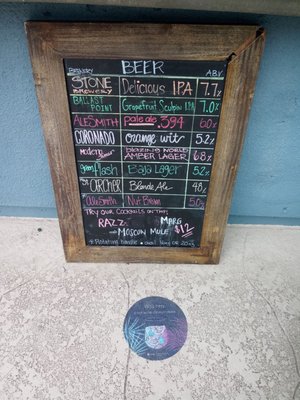 BREWERY BEER ABV
STONE BREWERY Delicious IPA 7.7%
BALLAST POINT Grapefruit Sculpin IPA 7.0%
ALESMITH pale ale .394 6.0%
CORONADO orange wit 5.2%
modern BLAZING WORLD AMBER LAGER 6.8%
green flash Baja Lager 5.2%
ARCHER Blonde Ale 4.8%
AleSmith Nut Brown 5.0%
TRY OUR COCKTAILS ON TAP:
RAZZ MARG $12
MOSCOW MULE
* Rotating handle